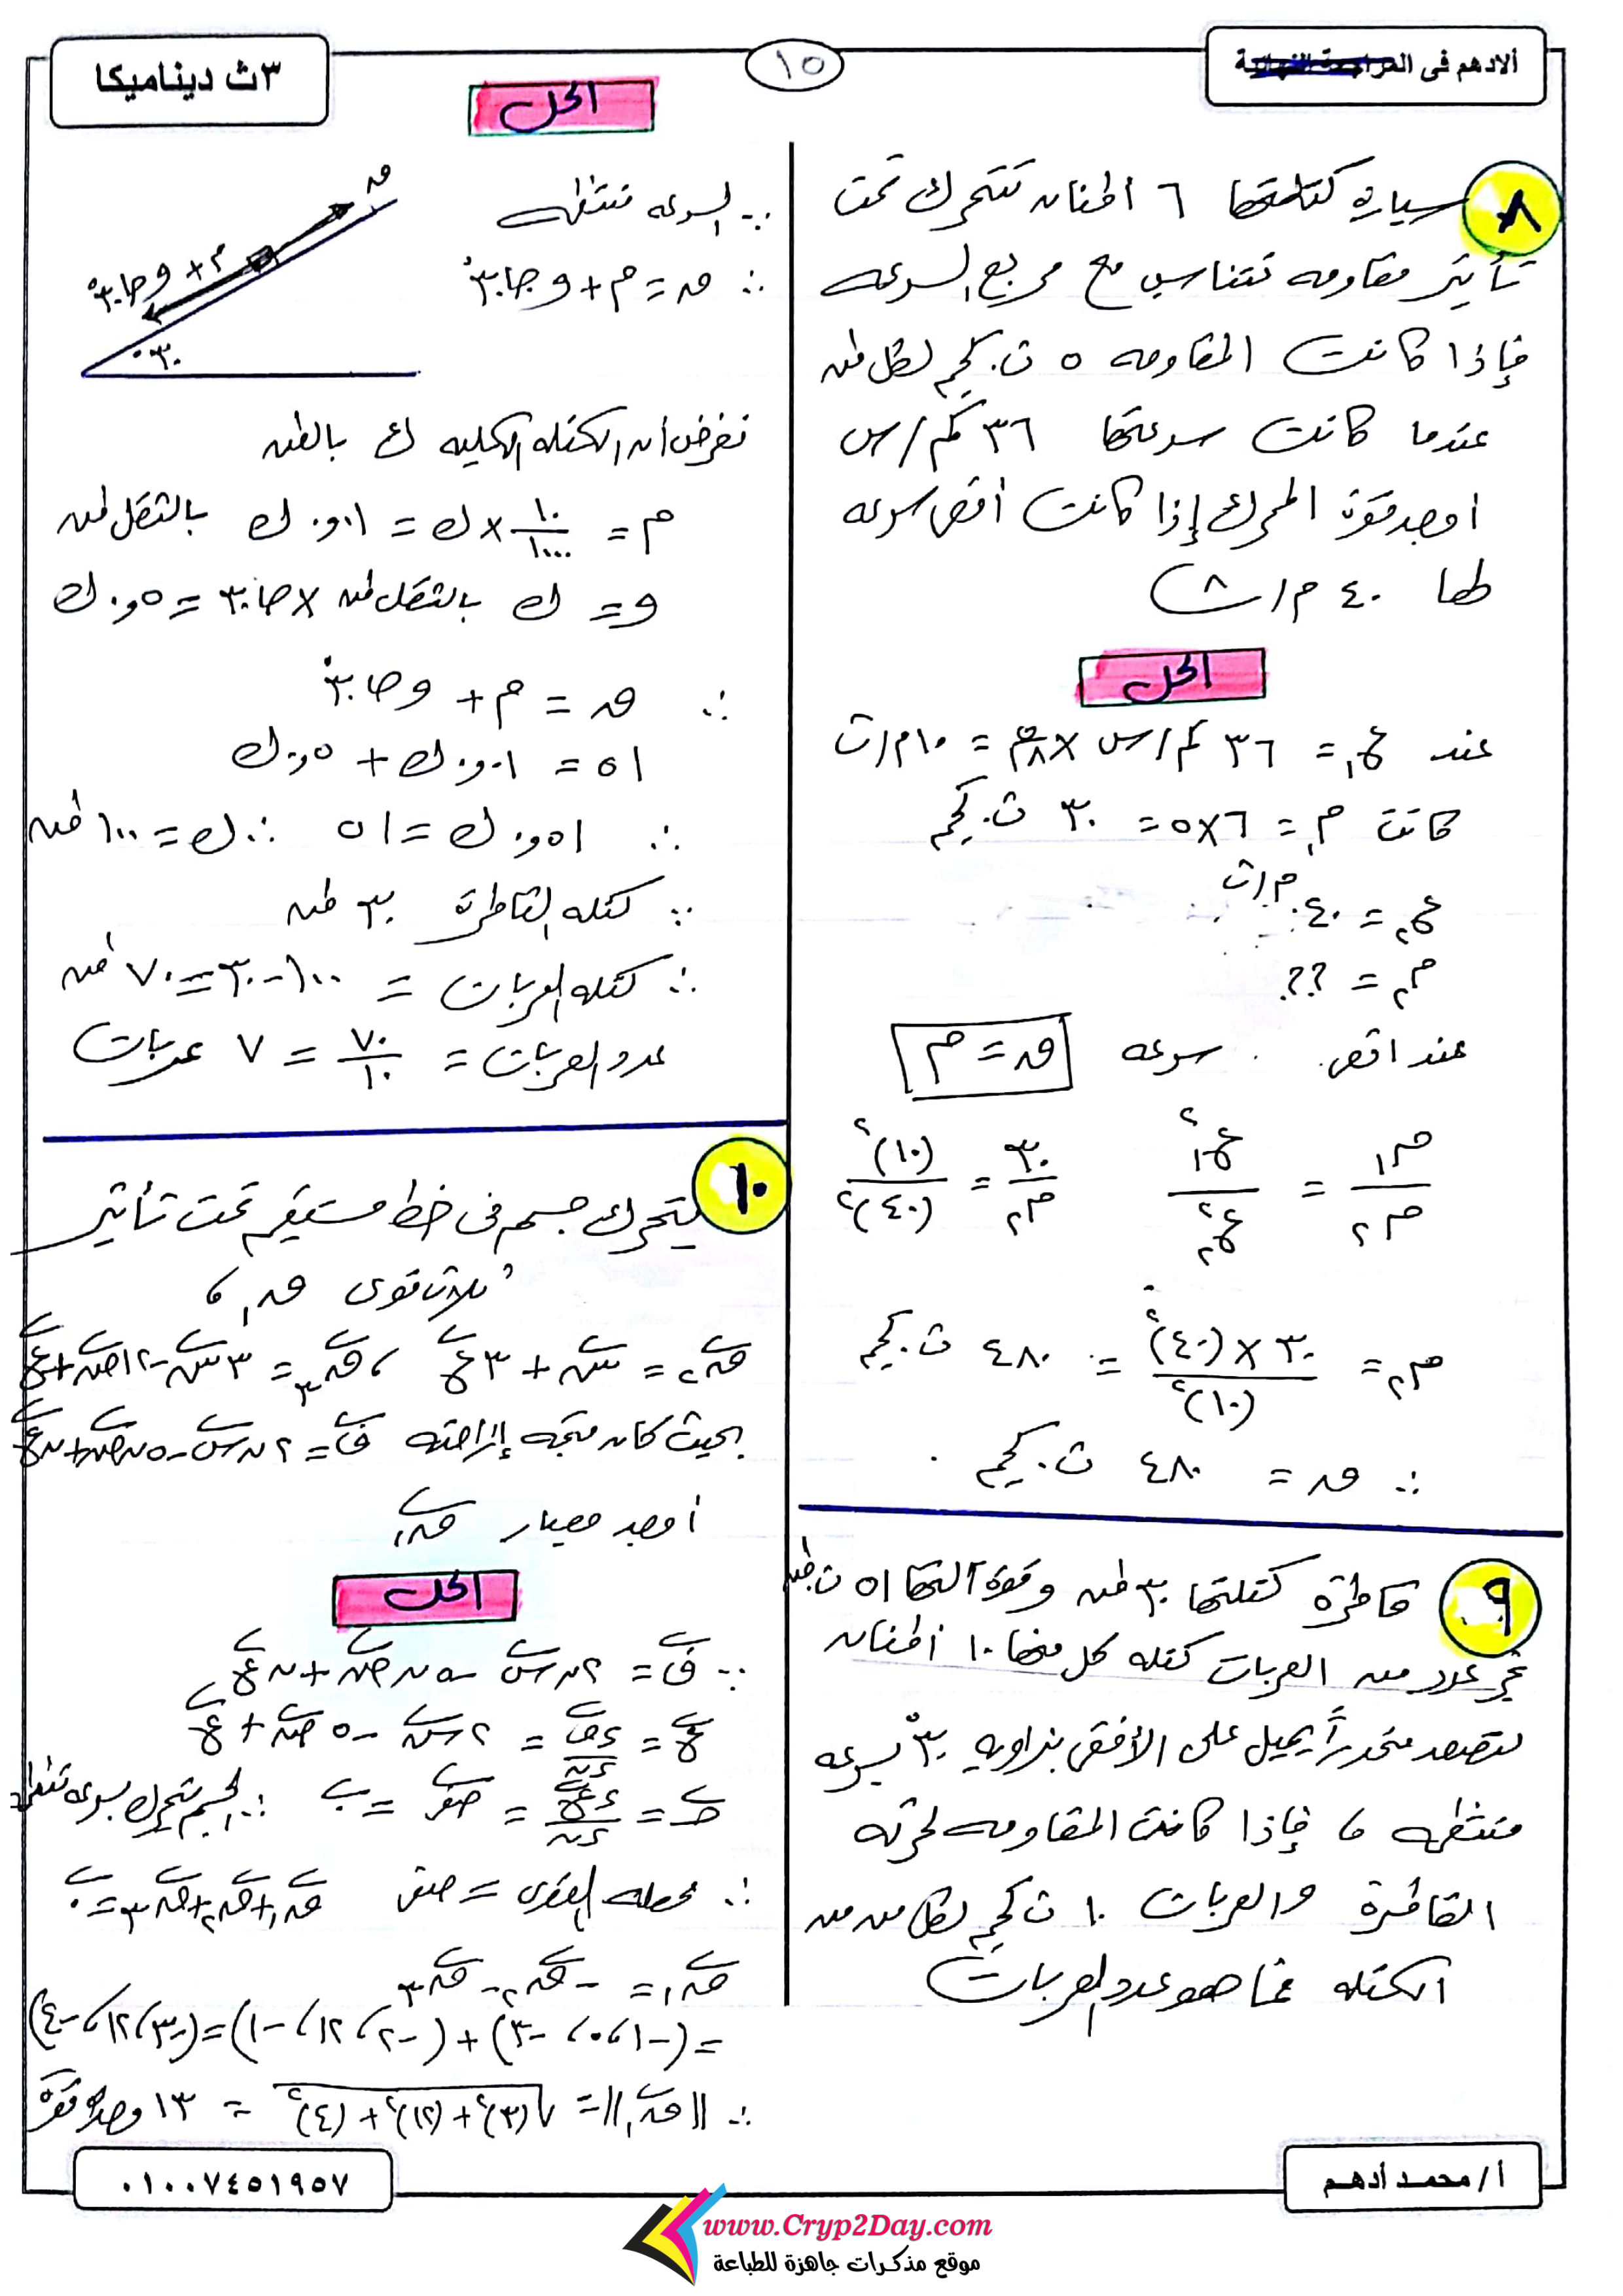 ألادهم فى المراجعة النهائية
١٥
٣ث ديناميكا
٨ سيارة كتلتها ٦ أطنان تتحرك تحت
تأثير مقاومه تتناسب مع مربع السرعه
فإذا كانت المقاومه ٥ ث.كجم لكل طن
عندما كانت سرعتها ٣٦ كم/س
أوجد قوة المحرك إذا كانت أقصى سرعه
لها ٤٠ م/ث
الحل
عند ع١ = ٣٦ كم/س × ٥/١٨ = ١٠ م/ث
كانت م١ = ٦×٥ = ٣٠ ث.كجم
ع٢ = ٤٠ م/ث
م٢ = ??
عند اقصى سرعه ق = م
م١/م٢ = ع١²/ع٢² ٣٠/م٢ = (١٠)²/(٤٠)²
م٢ = ٣٠ × (٤٠)² / (١٠)² = ٤٨٠ ث.كجم
∴ ق = ٤٨٠ ث.كجم
٩ قاطرة كتلتها ٣٠ طن وقوة آلتها ٥١ ث.طن
تجر عدد من العربات كتله كل منها ١٠ أطنان
لتصعد منحدراً يميل على الأفقى بزاويه ٣٠° بسرعه
منتظمه ، فإذا كانت المقاومه لحركه
القاطرة والعربات ١٠ ث كجم لكل طن من
الكتله فما هو عدد العربات
الحل
∵ السرعه منتظمه
∴ ق = م + و جا٣٠°
ق
م + و جا٣٠°
٣٠°
نفرض أن الكتله الكليه ك بالطن
م = ١٠/١٠٠٠ × ك = ٠,٠١ ك بالثقل طن
و = ك بالثقل طن × جا٣٠ = ٠,٥ ك
∴ ق = م + و جا٣٠°
٥١ = ٠,٠١ ك + ٠,٥ ك
∴ ٠,٥١ ك = ٥١ ∴ ك = ١٠٠ طن
∵ كتله القاطرة ٣٠ طن
∴ كتله العربات = ١٠٠ - ٣٠ = ٧٠ طن
عدد العربات = ٧٠/١٠ = ٧ عربات
١٠ يتحرك جسم فى خط مستقيم تحت تأثير
ثلاث قوى ق١ ،
ق٢ = س + ٣ع ، ق٣ = ٣س - ١٢ص + ع
بحيث كان متجه إزاحته ف = ٢ن س - ٥ن ص + ن ع
أوجد معيار ق١
الحل
∵ ف = ٢ن س - ٥ن ص + ن ع
ع = ءف/ءن = ٢س - ٥ص + ع
جـ = ءع/ءن = صفر = ٠ ∴ الجسم يتحرك بسرعه منتظمه
∴ محصله القوى = صفر ق١ + ق٢ + ق٣ = ٠
ق١ = - ق٢ - ق٣
= (-١، ٠، -٣) + (-٢، ١٢، -١) = (-٣، ١٢، -٤)
∴ ||ق١|| = √(٣)² + (١٢)² + (٤)² = ١٣ وحدة قوة
أ / محمد أدهم
٠١٠٠٧٤٥١٩٥٧
www.Cryp2Day.com
موقع مذكرات جاهزة للطباعة